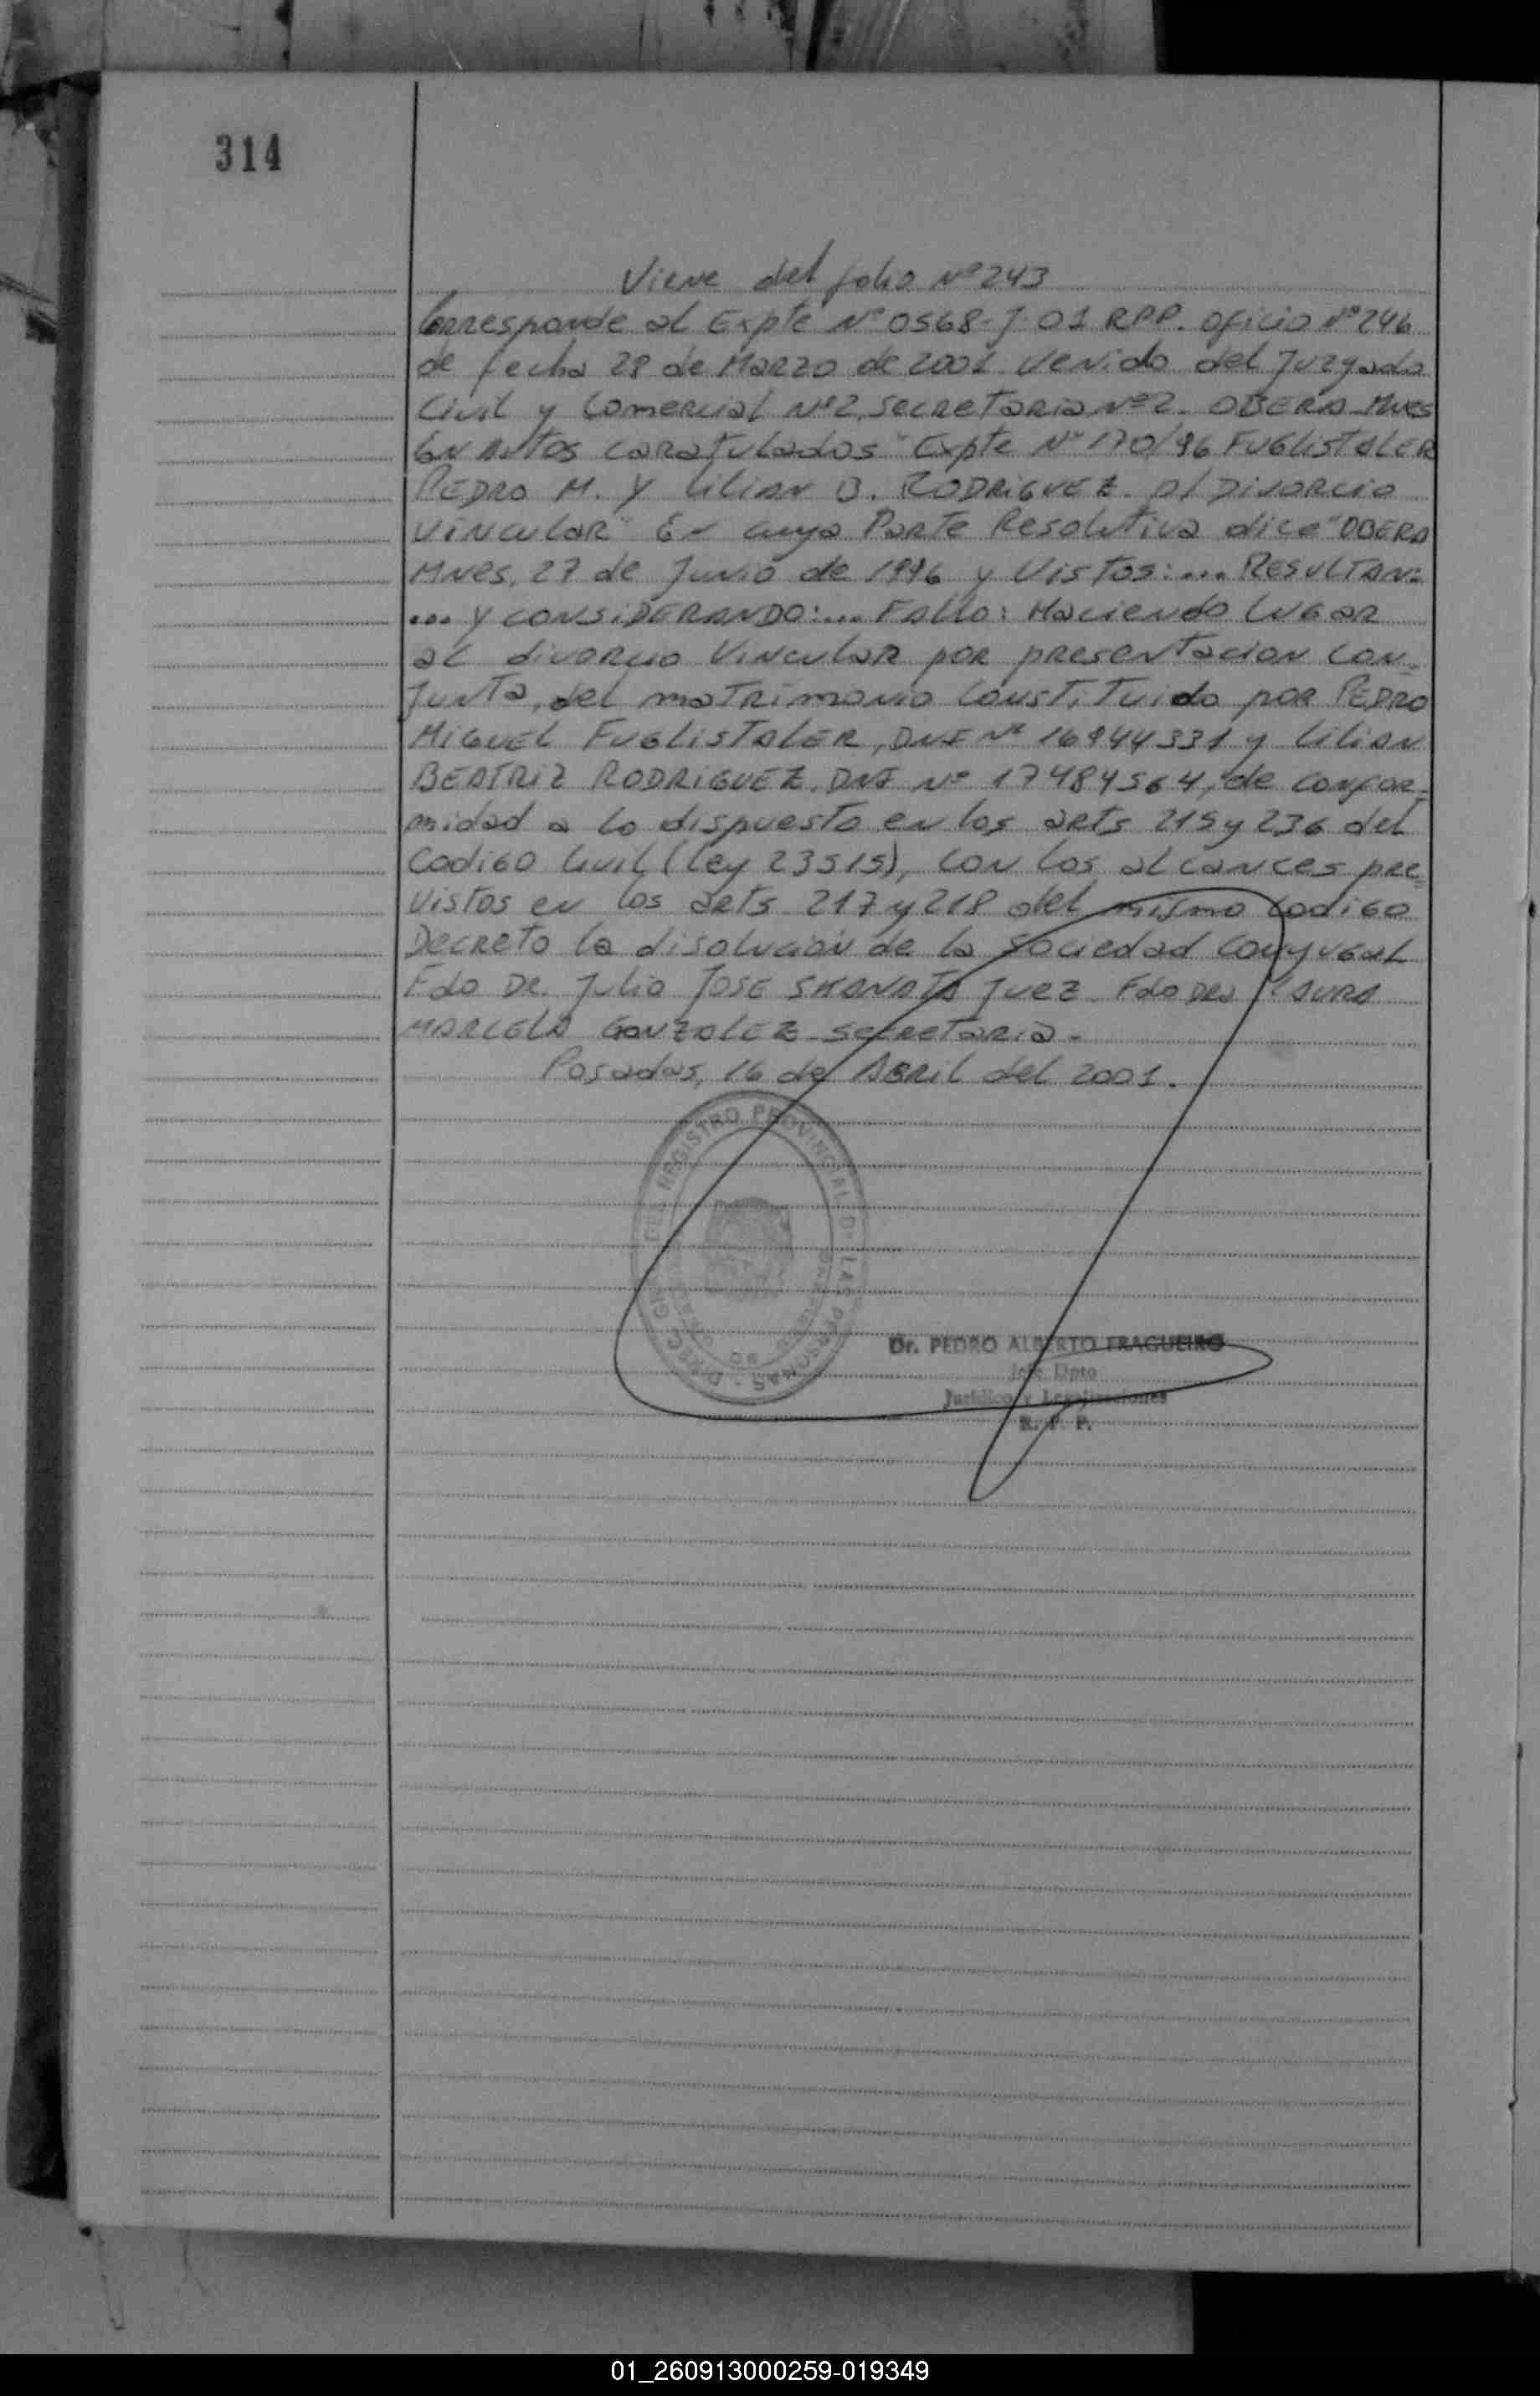 314
Viene del folio Nº 243
Corresponde al Expte Nº 0568-J-01 RPP. oficio Nº 246
de fecha 28 de Marzo de 2001 venido del Juzgado
Civil y Comercial Nº 2, secretaria Nº 2. OBERA Mnes
En Autos caratulados "Expte Nº 170/96 FUGLISTALER
PEDRO M. Y Lilian B. RODRIGUEZ P/ Divorcio
Vincular" En cuya Parte Resolutiva dice "OBERA
Mnes, 27 de Junio de 1996 y Vistos:... RESULTAN:
... Y CONSIDERANDO:... FALLO: Haciendo Lugar
al divorcio Vincular por presentacion con=
junta, del matrimonio constituido por PEDRO
MIGUEL FUGLISTALER, DNI Nº 16944331 y Lilian
BEATRIZ RODRIGUEZ, DNI Nº 17484564, de confor=
midad a lo dispuesto en los arts 215 y 236 del
Codigo Civil (Ley 23515), con los alcances pre=
vistos en los arts 217 y 218 del mismo codigo
Decreto la disolución de la sociedad conyugal
Fdo DR. Julio JOSE SKANATA Juez Fdo DRA LAURA
MARCELA GONZALEZ secretaria-
Posadas, 16 de Abril del 2001.
DEL REGISTRO PROVINCIAL DE LAS PERSONAS
Dr. PEDRO ALBERTO FRAGUEIRO
Jefe Dpto
Juridico y Legalizaciones
R. P. P.
01_260913000259-019349